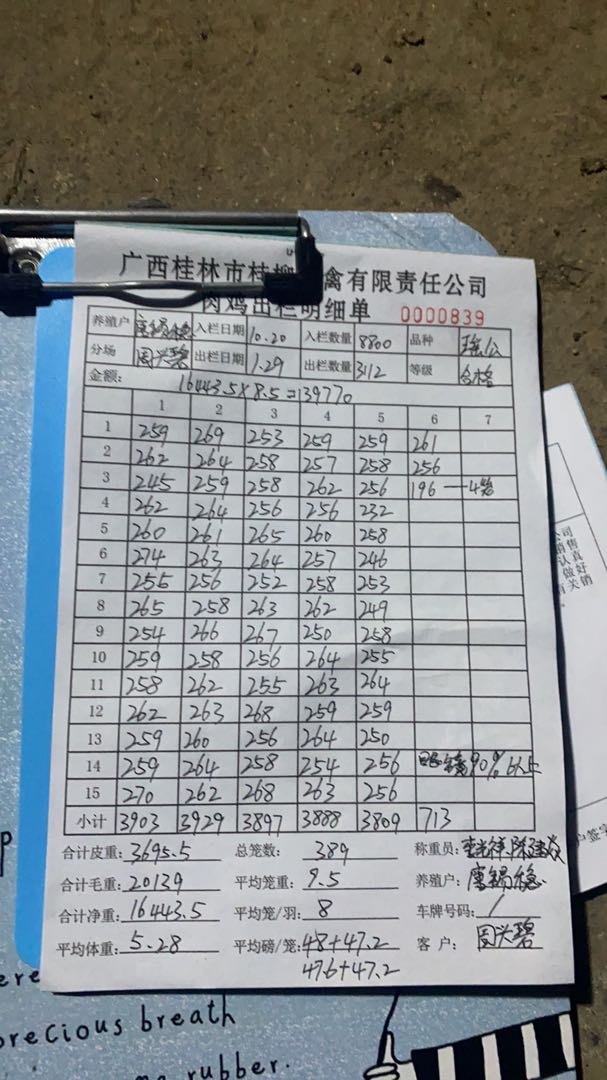 广西桂林市桂柳 禽有限责任公司
肉鸡出栏明细单 0000839
养殖户 唐锡稳 入栏日期 10.20 入栏数量 8800 品种 瑶公
分场 周头碧 出栏日期 1.29 出栏数量 3112 等级 合格
金额: 16443.5×8.5=139770
1 2 3 4 5 6 7
1 259 269 253 259 259 261
2 262 264 258 257 258 256
3 245 259 258 262 256 196 —4笼
4 262 264 256 256 232
5 260 261 265 260 258
6 274 263 264 257 246
7 255 256 252 258 253
8 265 258 263 262 249
9 254 266 267 250 258
10 259 258 256 264 255
11 258 262 255 263 264
12 262 263 268 259 259
13 259 260 256 264 250
14 259 264 258 254 256 90%以上
15 270 262 268 263 256
小计 3903 3929 3897 3888 3809 713
合计皮重: 3695.5 总笼数: 389 称重员:
合计毛重: 20139 平均笼重: 9.5 养殖户: 唐锡稳
合计净重: 16443.5 平均笼/羽: 8 车牌号码: /
平均体重: 5.28 平均磅/笼: 48+47.2 客 户: 周头碧
47.6+47.2
公司
销售
认真
做好
有关销
户签字
ere
precious breath
rubber.